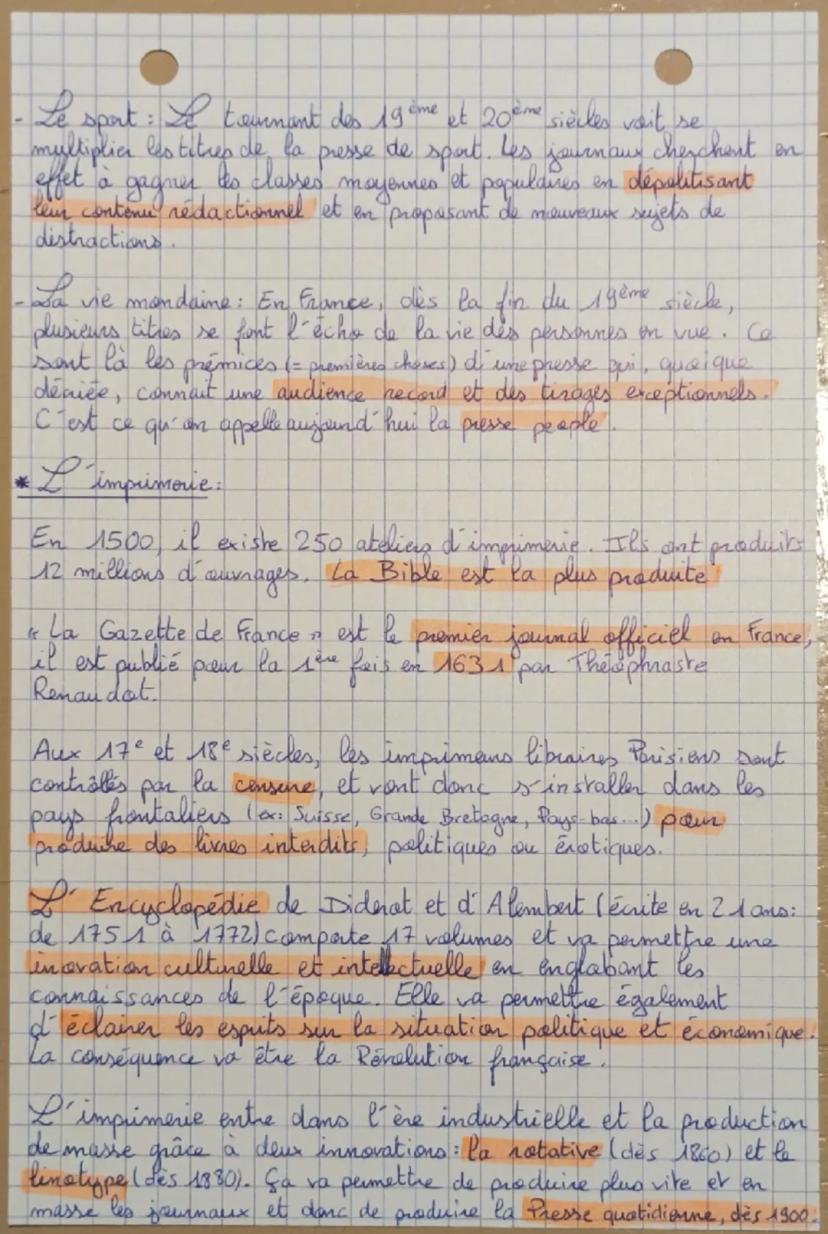 - Le sport : Le tournant des 19ème et 20ème siècles voit se
multiplier les titres de la presse de sport. Les journaux cherchent en
effet à gagner les classes moyennes et populaires en dépolitisant
leur contenu rédactionnel et en proposant de nouveaux sujets de
distractions.
- La vie mondaine : En France, dès la fin du 19ème siècle,
plusieurs titres se font l'écho de la vie des personnes en vue. Ce
sont là les prémices (= premières choses) d'une presse qui, quoique
décriée, connait une audience record et des tirages exceptionnels.
C'est ce qu'on appelle aujourd'hui la presse people.
* L'imprimerie :
En 1500, il existe 250 ateliers d'imprimerie. Ils ont produits
12 millions d'ouvrages. La Bible est la plus produite
« La Gazette de France » est le premier journal officiel en France,
il est publié pour la 1ère fois en 1631 par Théophraste
Renaudot.
Aux 17e et 18e siècles, les imprimeurs libraires Parisiens sont
contrôlés par la censure, et vont donc s'installer dans les
pays frontaliers (ex: Suisse, Grande Bretagne, Pays-bas...) pour
produire des livres interdits, politiques ou érotiques.
L'Encyclopédie de Diderot et d'Alembert (écrite en 21 ans:
de 1751 à 1772) comporte 17 volumes et va permettre une
inovation culturelle et intellectuelle en englobant les
connaissances de l'époque. Elle va permettre également
d'éclairer les esprits sur la situation politique et économique.
La conséquence va être la Révolution française.
L'imprimerie entre dans l'ère industrielle et la production
de masse grâce à deux innovations : la rotative (dès 1860) et le
linotype (dès 1880). Ça va permettre de produire plus vite et en
masse les journaux et donc de produire la Presse quotidienne, dès 1900.